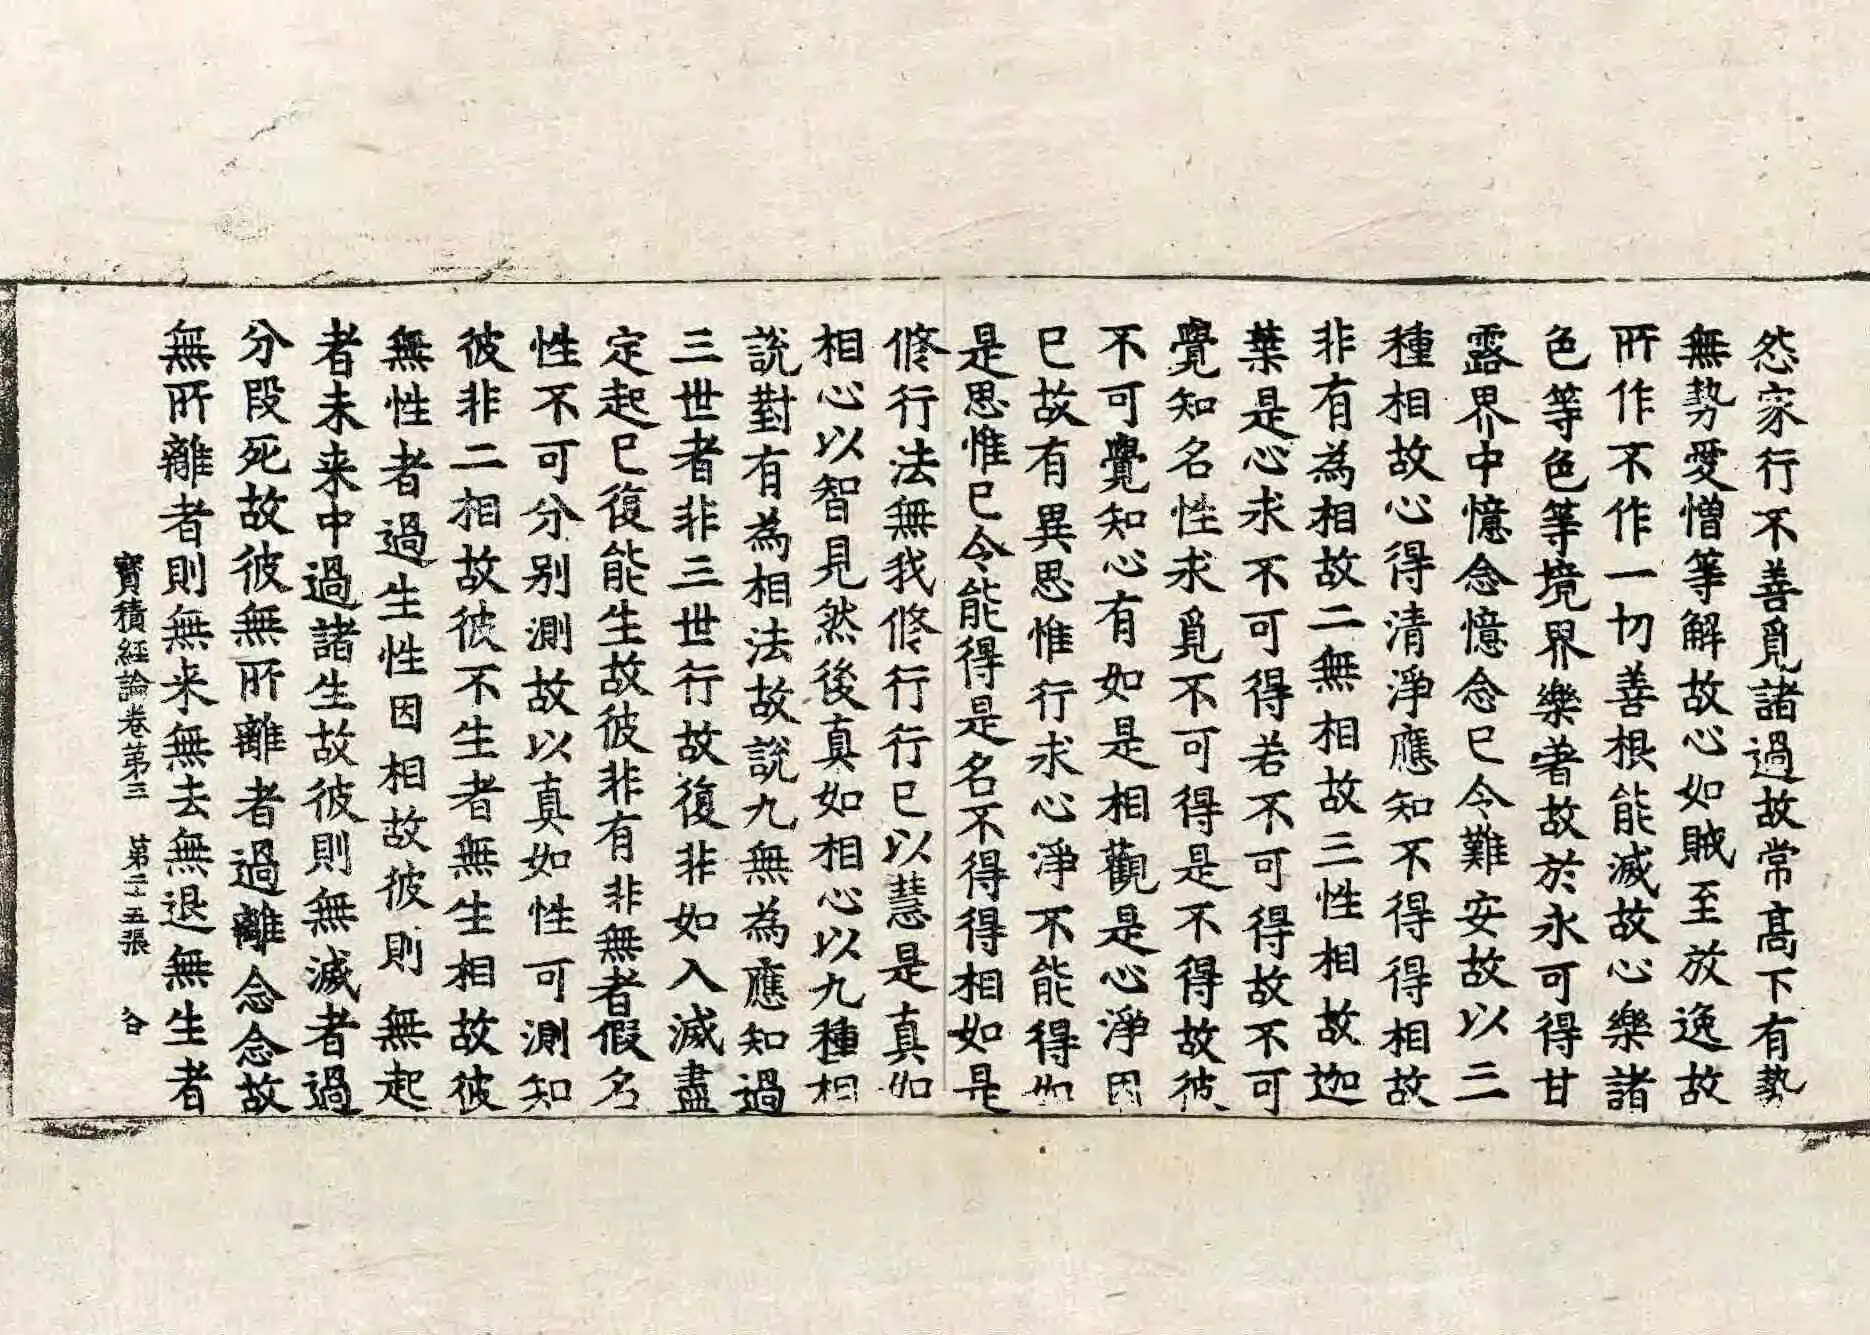 怨家行不善覓諸過故常髙下有勢
無勢愛憎等解故心如賊至放逸故
所作不作一切善根能滅故心樂諸
色等色等境界樂著故於永可得甘
露界中憶念憶念已令難安故以三
種相故心得清淨應知不得得相故
非有為相故二無相故三性相故迦
葉是心求不可得若不可得故不可
覺知名性求覓不可得是不得故彼
不可覺知心有如是相觀是心淨因
已故有異思惟行求心淨不能得如
是思惟已令能得是名不得得相如是
修行法無我修行行已以慧是真如
相心以智見然後真如相心以九種相
說對有為相法故說九無為應知過
三世者非三世行故復非如入滅盡
定起已復能生故彼非有非無者假名
性不可分別測故以真如性可測知
彼非二相故彼不生者無生相故彼
無性者過生性因相故彼則無起
者未来中過諸生故彼則無滅者過
分段死故彼無所離者過離念念故
無所離者則無来無去無退無生者
寳積經論卷第三 第二十五張 谷